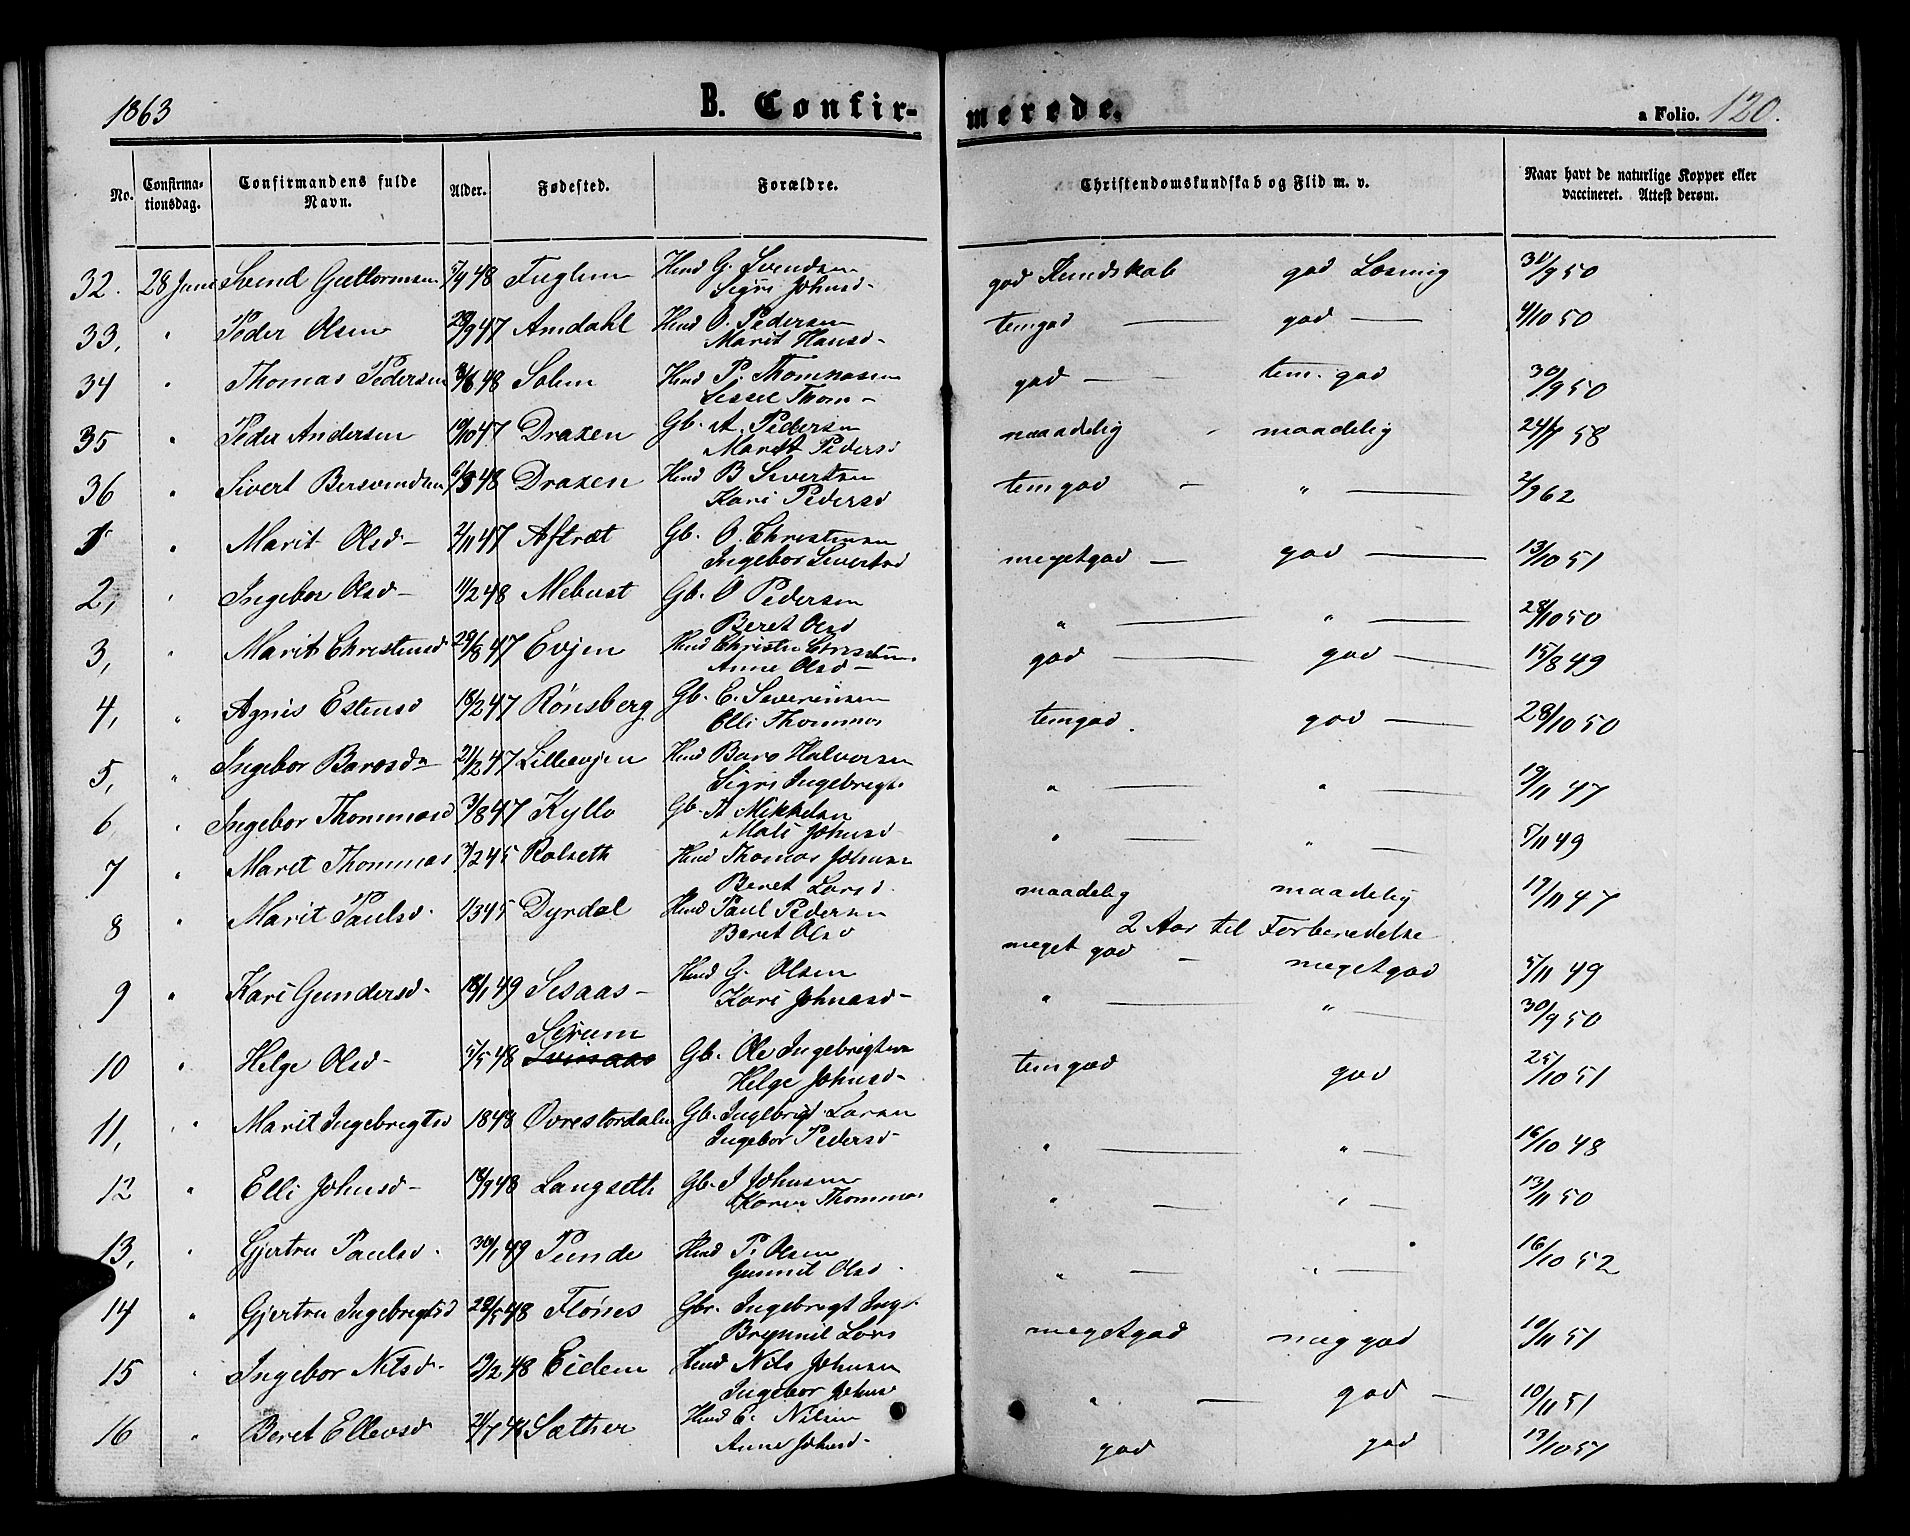 1863 B. Confir- merede. a Folio. 120.
No. Confirma-tionsdag. Confirmandens fulde Navn. Alder. Fødested. Forældre. Christendomskundskab og Flid m. v. Naar havt de naturlige Kopper eller vaccineret. Attest derom.
32. 28 Juni Svend Guttormsen 5/9 48 Fuglem Hmd G. Svendsen god Kundskab god Læsning 30/9 50
Sigri Johnsd-
33, " Peder Olsen 29/9 47 Amdahl Hmd O. Pedersen temgod — god — 4/10 50
Marit Hansd-
34 " Thomas Pedersen 48 Solem Hmd P. Thommasen god — tem. god 30/9 50
Sessel Thom-
35 " Peder Andersen 19/10 47 Draxen Gb. A. Pedersen maadelig - maadelig 24/7 58
Maret Pedersd
36 " Sivert Bersvendsen 6/3 48 Draxen Hmd B Sivertsen temgod — " — 2/9 62
Kari Pedersd
1 " Marit Olsd- 2/11 47 Aftræt Gb. O. Christensen megetgod — god — 13/10 51
Ingebor Sivertsd
2, " Ingebor Olsd- 11/2 48 Mebust Gb. O Pedersen " — " — 28/10 50
Beret Olsd
3, Marit Christensd 29/8 47 Evjen Hmd Christen Christens. god — god — 15/8 49
Anne Olsd-
4, " Agnis Estensd 18/2 47 Rønsberg Gb. E. Severinsen temgod. god — 28/10 50
Elli Thommas
5, " Ingebor Barosdn 21/12 47 Lilleevjen Hmd Baro Halvorsen " — " — 19/11 47
Sigri Ingebrigts
6 " Ingebor Thommasd 3/8 47 Kyllo Gb. T Mikkelsen " — " — 5/11 49
Mali Johnsd-
7 " Maret Thommas 3/2 45 Rolseth Hmd Thomas Johnsen maadelig maadelig 17/11 47
Beret Larsd.
8 " Marit Paulsd. 1/3 45 Dyrdal Hmd Paul Pedersen 2 Aar til Forberedelse
Beret Olsd meget god — megetgod 5/11 49
9 " Kari Gundersd- 18/1 49 Sesaas- Hmd G. Olsen " — " — 30/9 50
Kari Johnasd-
Serum
10 " Helge Olsd- 5/5 48 Gb. Ole Ingebrigtsen temgod god 25/10 51
Helge Johnsd-
11, " Marit Ingebrigtsd 1848 Ovrestordalen Gb. Ingebrigt Larsen " — " — 16/10 48
Ingebor Pedersd-
12 " Elli Johnsd- 18/9 48 Langseth Gb. J Johnsen " — " — 13/11 50
Karen Thommas
13, " Gjertru Paulsd. 30/1 49 Punde Hmd P. Olsen " — " — 16/10 52
Gunnil Olsd.
14 " Gjertru Ingebrigtsd 22/5 48 Flønes Gbr. Ingebrigt Ing. megetgod meg god 10/11 51
Brynnil Lars
15 " Ingebor Nilsd. 19/2 48 Eidem Hmd Nils Johnsen " — god — 10/11 51
Ingebor Johns
16 " Beret Ellevsd Sæther Hmd E. Nilsen god god 13/10 51
Anne Johnsd-